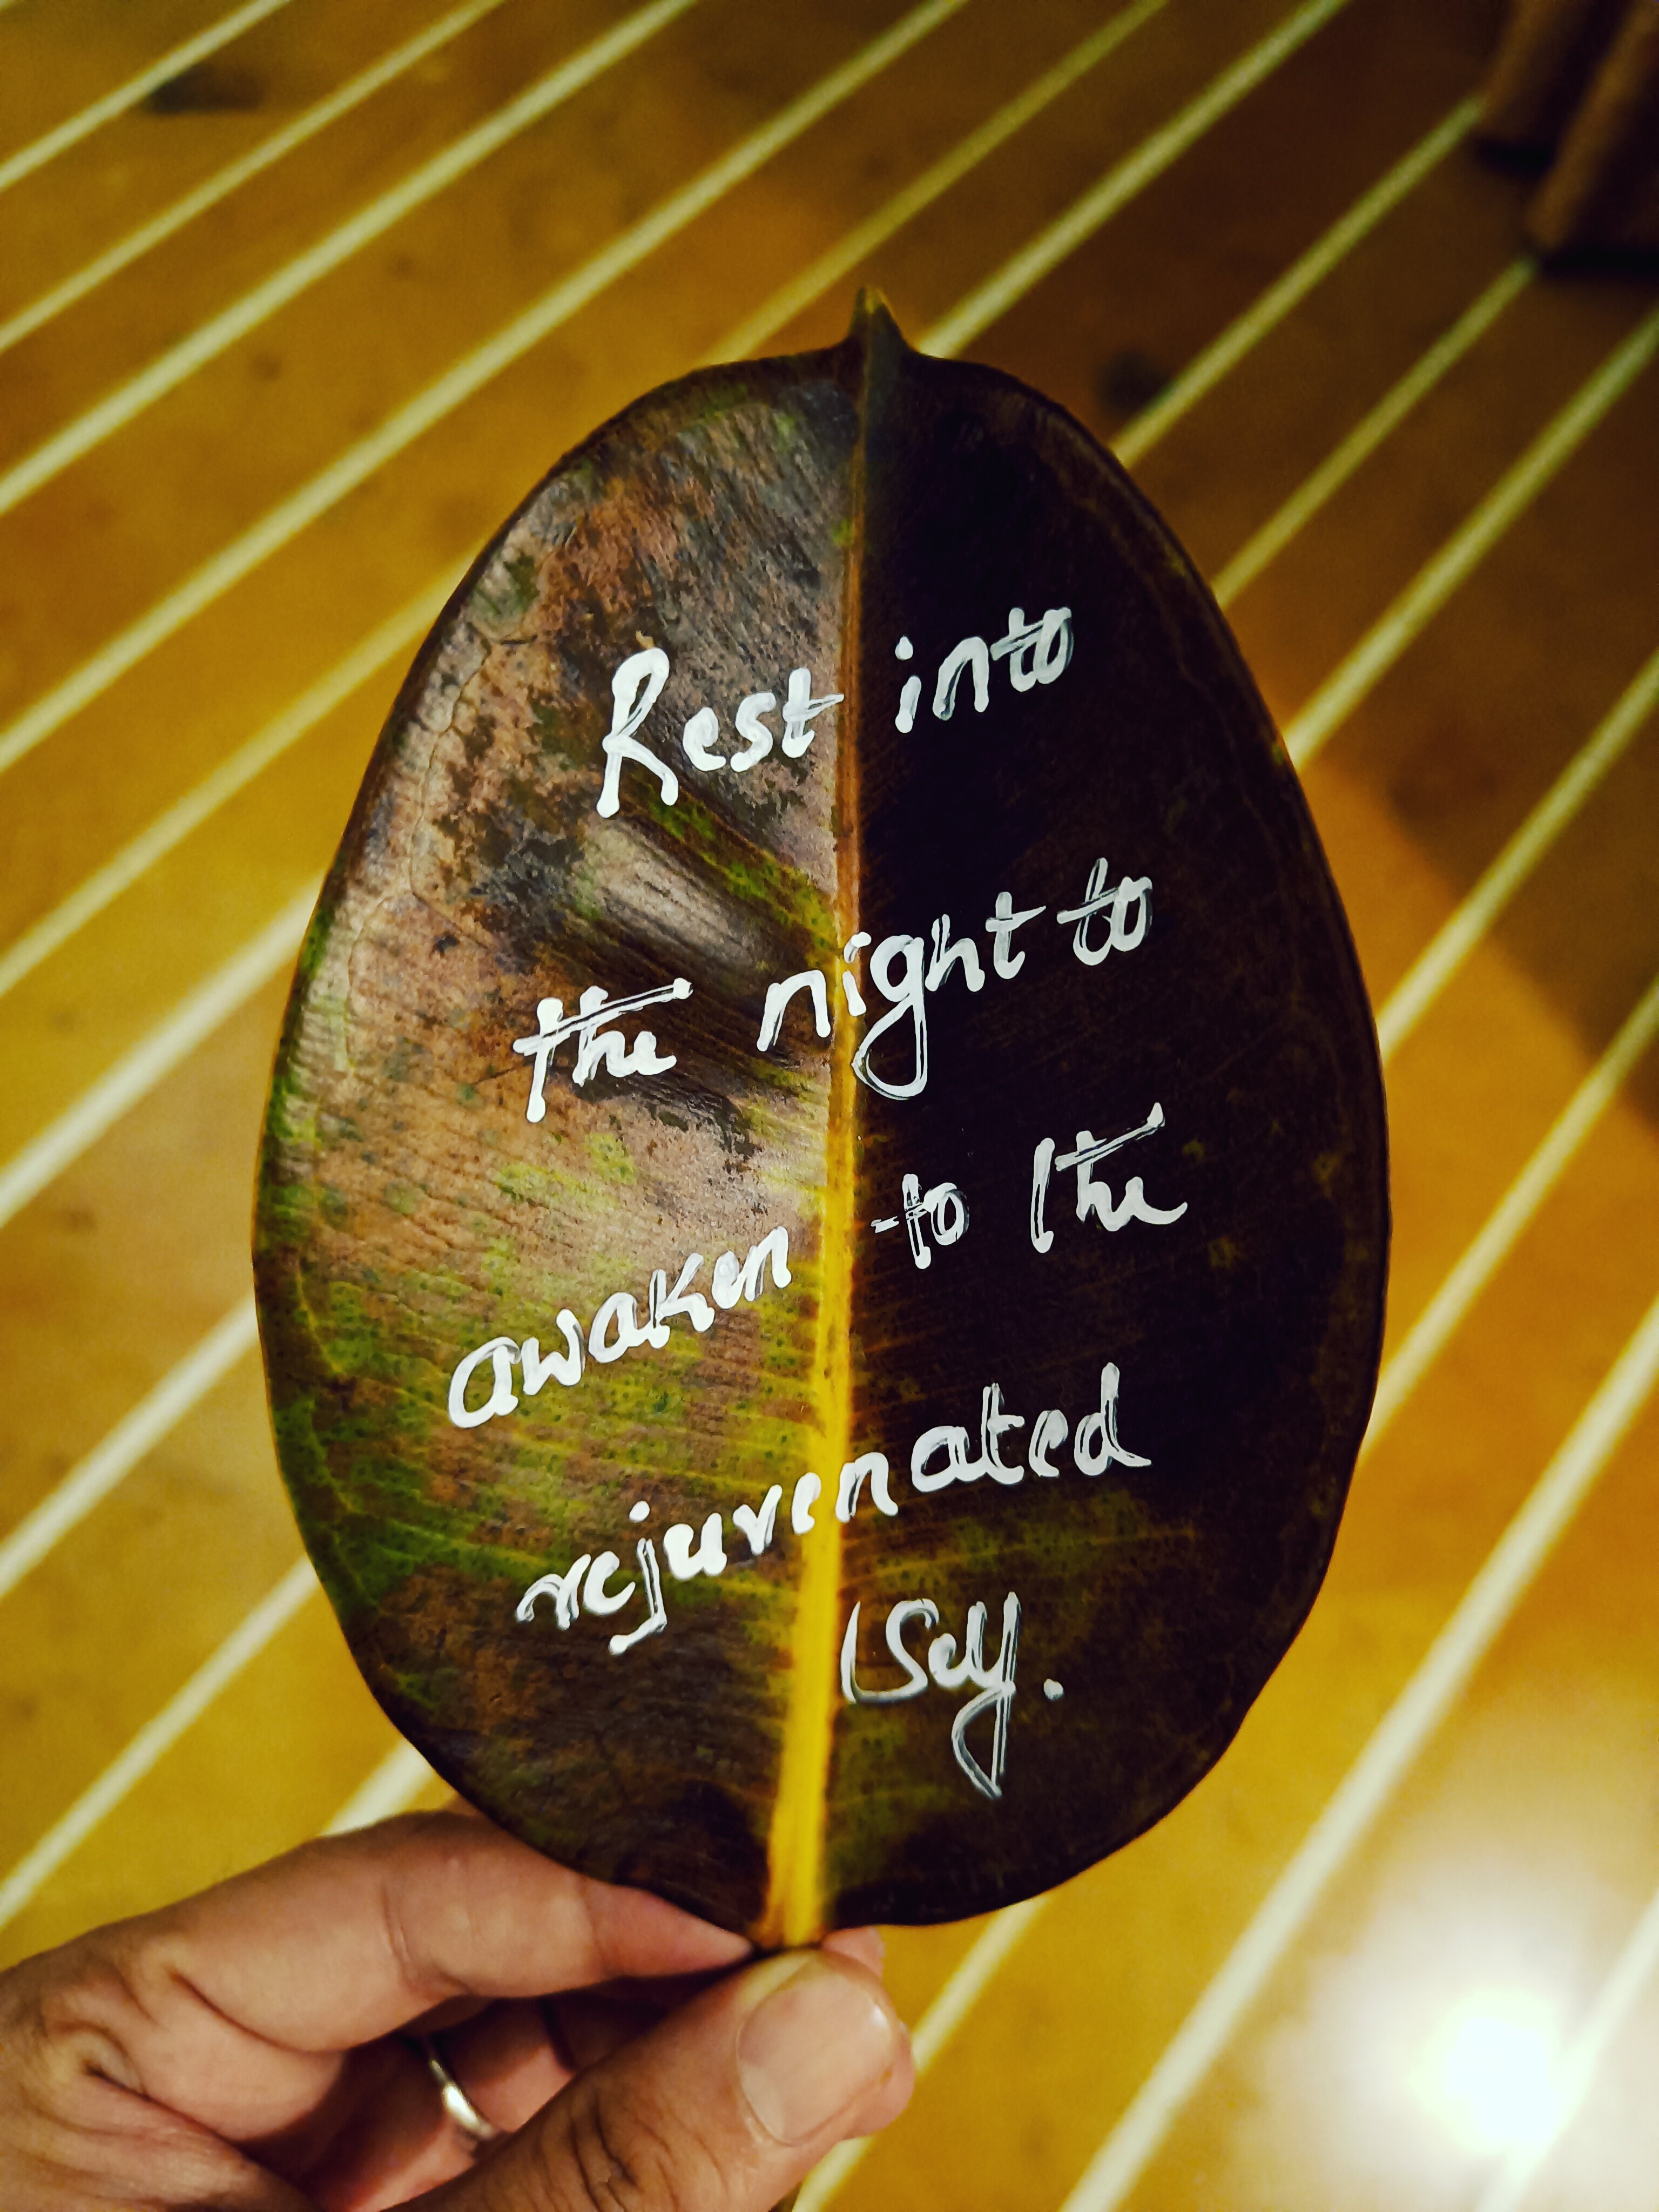 Rest into
the night to
awaken to the
rejuvenated